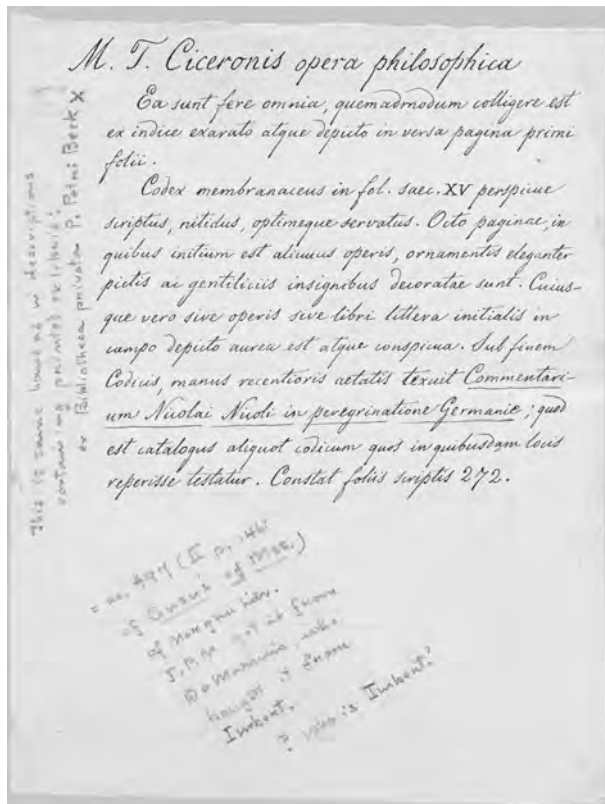 M. T. Ciceronis opera philosophica
Ea sunt fere omnia, quemadmodum colligere est
ex indice exarato atque depicto in versa pagina primi
folii.
Codex membranaceus in fol. saec. XV perspicue
scriptus, nitidus, optimeque servatus. Octo paginae, in
quibus initium est alicuius operis, ornamentis eleganter
pictis ac gentiliciis insignibus decoratae sunt. Cuius-
que vero sive operis sive libri littera initialis in
campo depicto aurea est atque conspicua. Sub finem
Codicis, manus recentioris aetatis texuit Commentari-
um Nicolai Nicoli in peregrinatione Germanie; quod
est catalogus aliquot codicum quos in quibusdam locis
reperisse testatur. Constat foliis scriptis 272.
This is same hand as in descriptions
of certain mss
ex Bibliotheca privata P. Petri Beckx
= no. 497 (II p. 146
of Mss.)
of
J.P.M. got it from
De Marinis, who
bought it from
Imbert.
? who is Imbert?